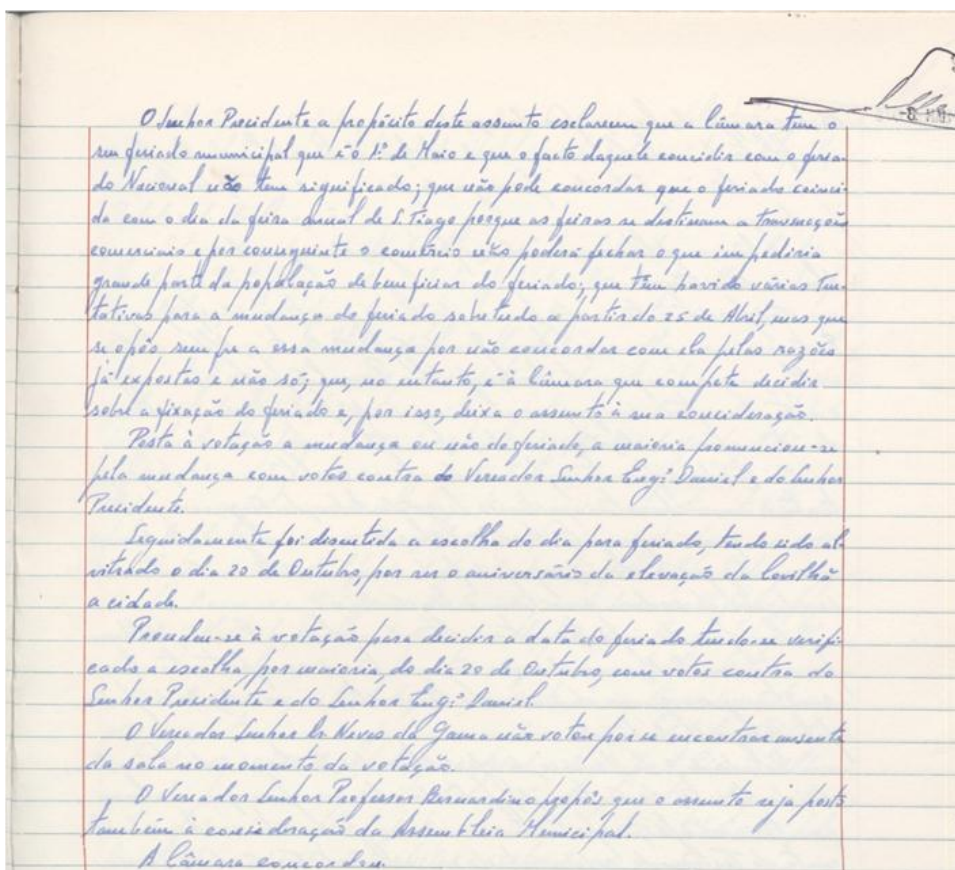 O Senhor Presidente a propósito deste assunto esclareceu que a Câmara tem o
seu feriado municipal que é o 1º de Maio e que o facto daquele coincidir com o feria-
do Nacional não tem significado; que não pode concordar que o feriado coinci-
da com o dia da feira anual de S. Tiago porque as feiras se destinam a transacções
comerciais e por conseguinte o comércio não poderá fechar o que impediria
grande parte da população de beneficiar do feriado; que têm havido várias ten-
tativas para a mudança do feriado sobretudo a partir do 25 de Abril, mas que
se opôs sempre a essa mudança por não concordar com ela pelas razões
já expostas e não só; que, no entanto, é à Câmara que compete decidir
sobre a fixação do feriado e, por isso, deixa o assunto à sua consideração.
Posta à votação a mudança ou não do feriado, a maioria pronunciou-se
pela mudança com votos contra do Vereador Senhor Engº Daniel e do Senhor
Presidente.
Seguidamente foi discutida a escolha do dia para feriado, tendo sido al-
vitrado o dia 20 de Outubro, por ser o aniversário da elevação da Covilhã
a cidade.
Procedeu-se à votação para decidir a data do feriado tendo-se verifi-
cado a escolha por maioria, do dia 20 de Outubro, com votos contra do
Senhor Presidente e do Senhor Engº Daniel.
O Vereador Senhor Dr. Neves da Gama não votou por se encontrar ausente
da sala no momento da votação.
O Vereador Senhor Professor Bernardino propôs que o assunto seja posto
também à consideração da Assembleia Municipal.
A Câmara concordou.